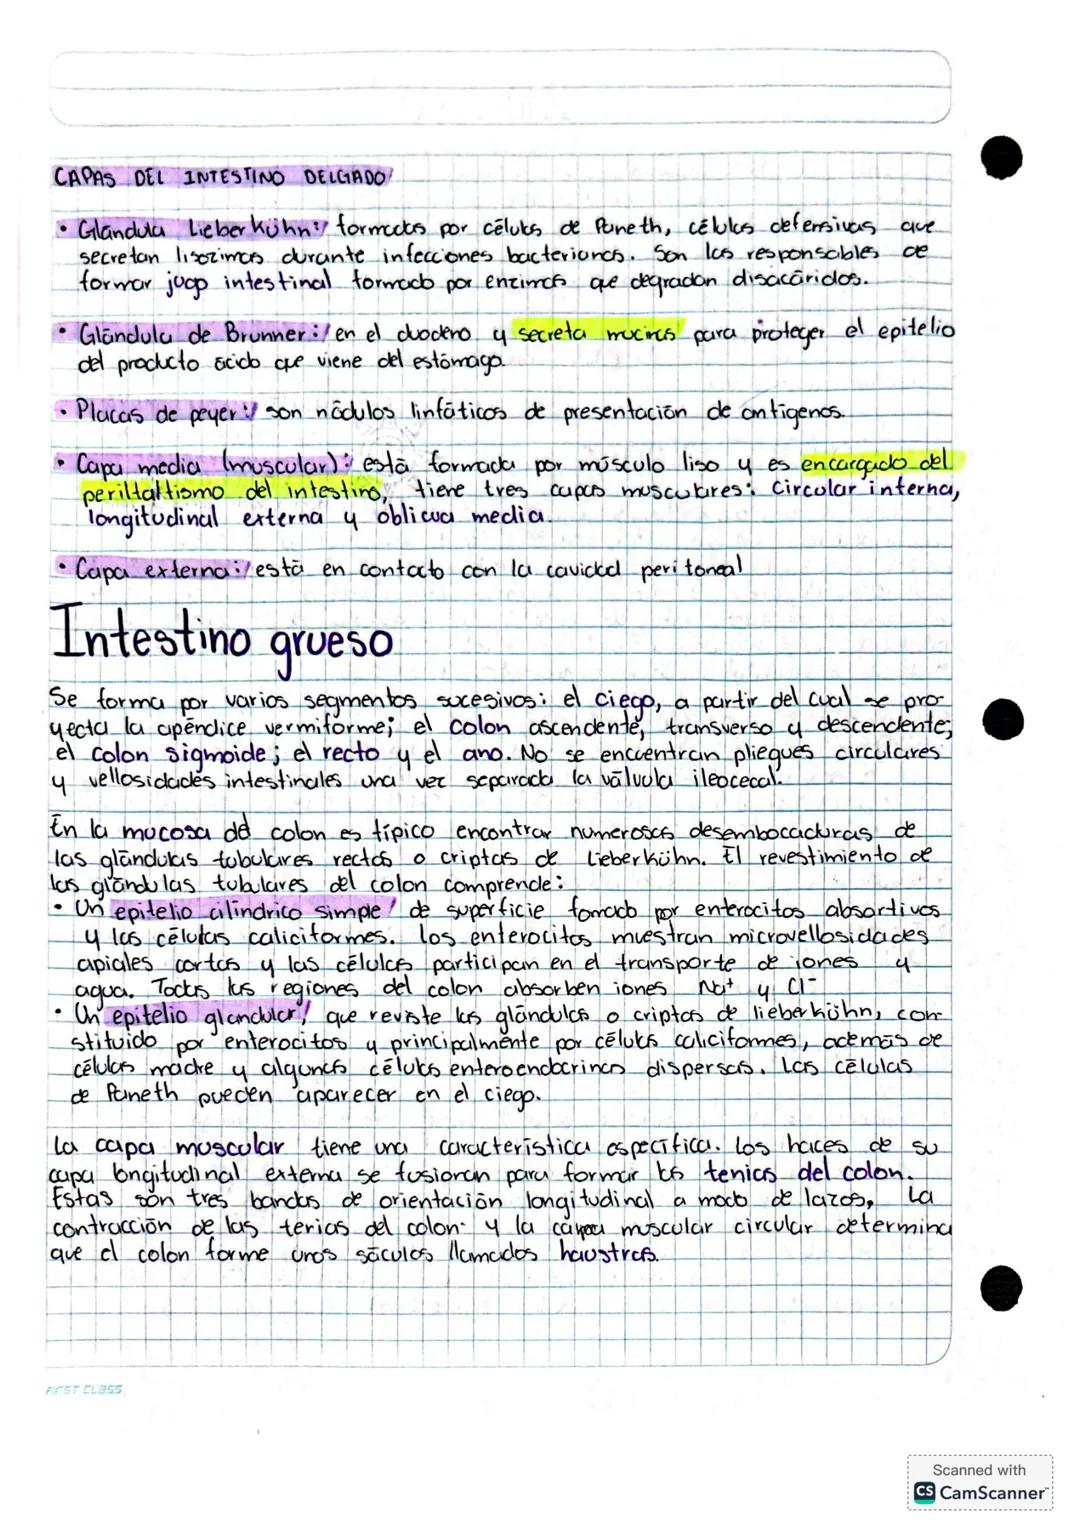 CAPAS DEL INTESTINO DELGADO
• Glándula Lieberkühn: formadas por células de Paneth, células defensivas que
secretan lisozimas durante infecciones bacterianas. Son las responsables de
formar jugo intestinal formado por enzimas que degradan disacáridos.
• Glándula de Brunner: en el duodeno y secreta mucinas para proteger el epitelio
del producto ácido que viene del estómago.
• Placas de peyer: son nódulos linfáticos de presentación de antígenos.
• Capa media (muscular): está formada por músculo liso y es encargado del
periltaltismo del intestino, tiene tres capas musculares: Circular interna,
longitudinal externa y oblicua media.
• Capa externa: está en contacto con la cavidad peritoneal
Intestino grueso
Se forma por varios segmentos sucesivos: el ciego, a partir del cual se pro-
yecta la apéndice vermiforme; el colon ascendente, transverso y descendente;
el colon sigmoide; el recto y el ano. No se encuentran pliegues circulares
y vellosidades intestinales una vez separada la válvula ileocecal.
En la mucosa del colon es típico encontrar numerosas desembocaduras de
las glándulas tubulares rectas o criptas de Lieberkühn. El revestimiento de
las glándulas tubulares del colon comprende:
• Un epitelio cilíndrico simple de superficie formado por enterocitos absortivos
y las células caliciformes. Los enterocitos muestran microvellosidades
apiales cortas y las células participan en el transporte de iones y
agua. Todas las regiones del colon absorben iones Na+ y Cl-
• Un epitelio glandular, que reviste las glándulas o criptas de lieberkühn, con
stituido por enterocitos y principalmente por células caliciformes, además de
células madre y algunas células enteroendocrinas dispersas. Las células
de Paneth pueden aparecer en el ciego.
La capa muscular tiene una característica específica. Los haces de su
capa longitudinal externa se fusionan para formar las tenias del colon.
Estas son tres bandas de orientación longitudinal a modo de lazos, La
contracción de las tenias del colon y la capa muscular circular determina
que el colon forme unos sáculos llamados haustras.
FIRST CLASS
Scanned with
CS CamScanner